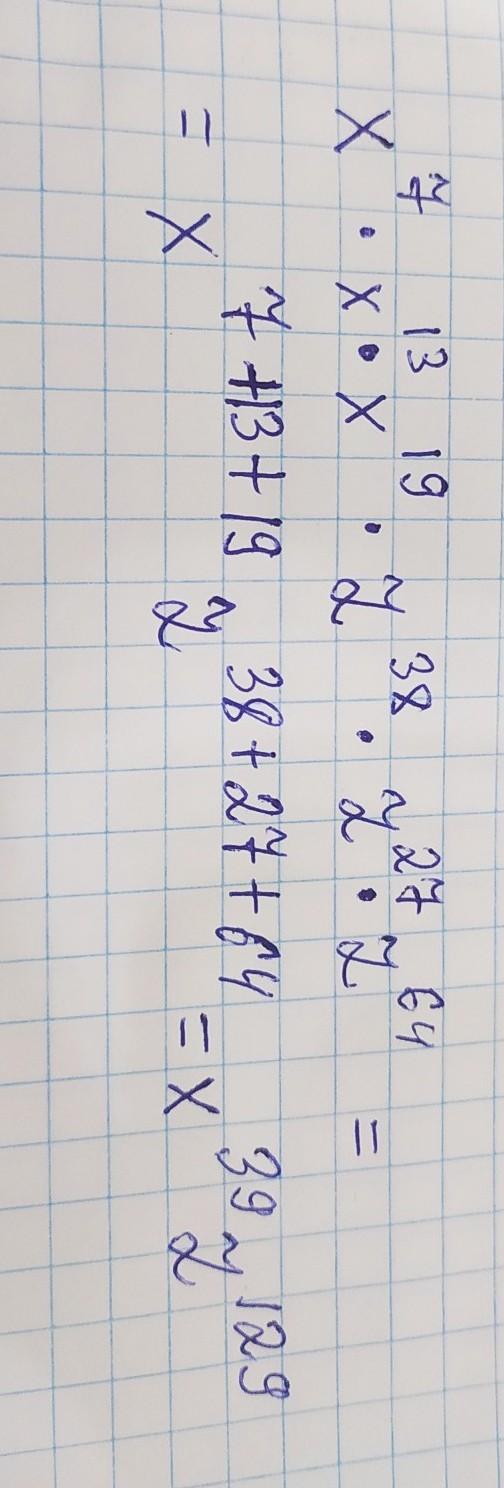 x⁷ · x¹³ · x¹⁹ · z³⁸ · z²⁷ · z⁶⁴ =
= x⁷⁺¹³⁺¹⁹ z³⁸⁺²⁷⁺⁶⁴ = x³⁹ z¹²⁹